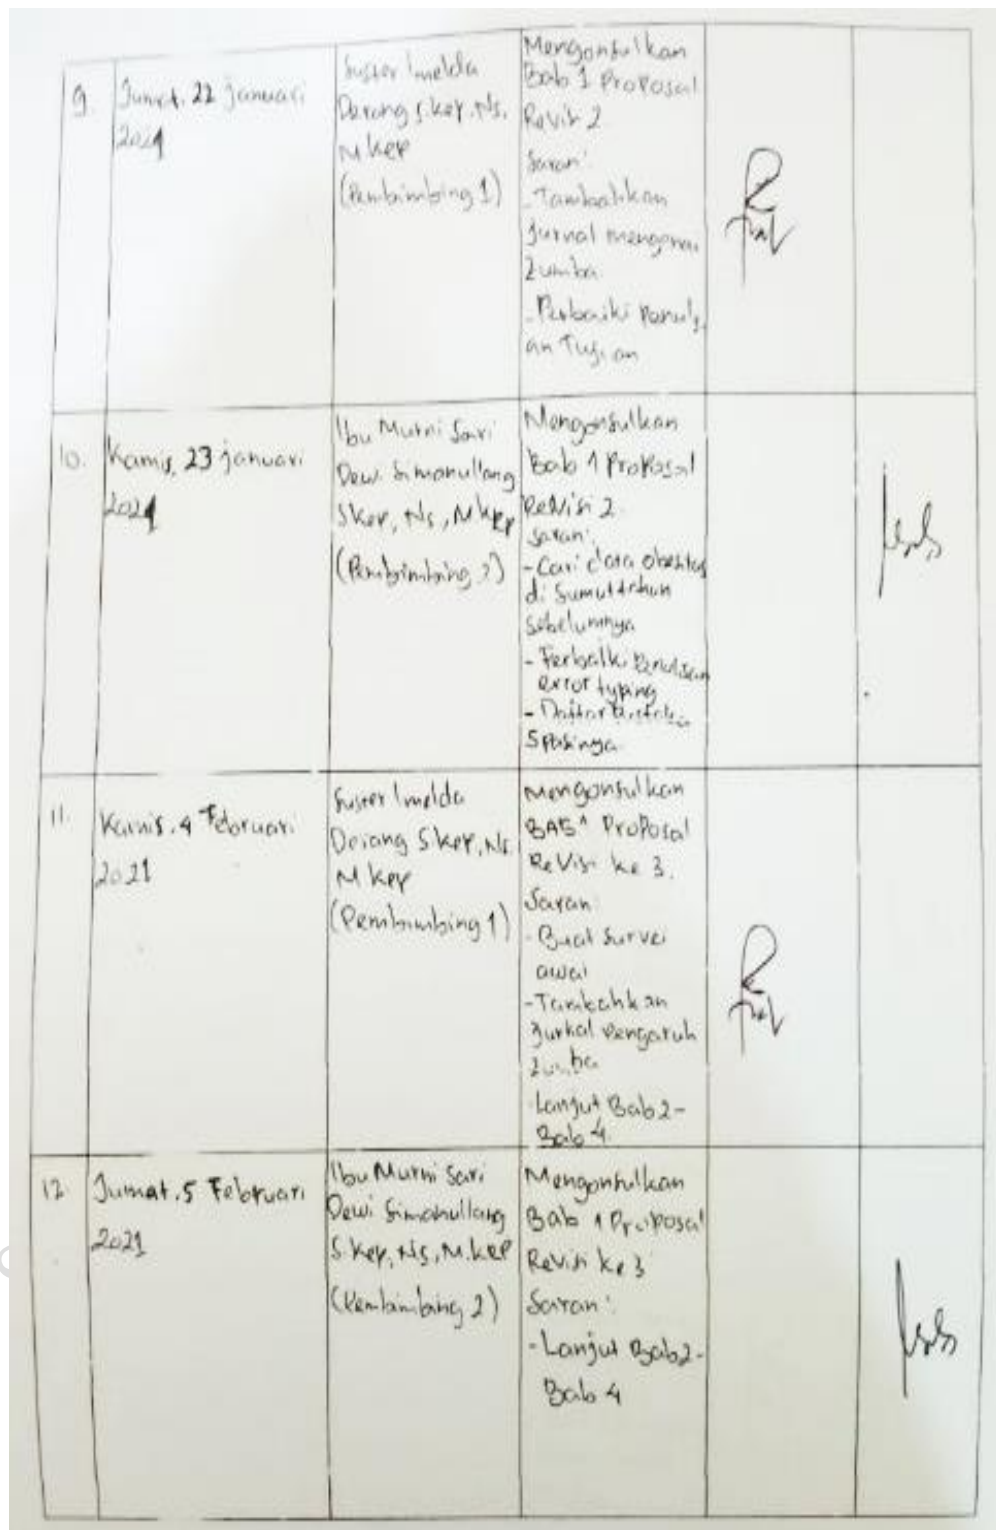 9.
Jumat, 22 januari
2021
Suster Imelda
Derang S.kep, Ns,
M kep
(Pembimbing 1)
Mengonsulkan
Bab 1 Proposal
Revisi 2
Saran:
- Tambahkan
Jurnal mengenai
Zumba
- Perbaiki Penulis
an Tujuan
10.
Kamis, 23 januari
2021
Ibu Murni Sari
Dewi Simanullang
Skep, Ns, Mkep
(Pembimbing 2)
Mengonsulkan
Bab 1 Proposal
Revisi 2
saran:
- Cari data obesitas
di Sumut tahun
sebelumnya
- Perbaiki Penulisan
error typing
- Daftar
Spasinya
11.
Kamis, 4 Februari
2021
Suster Imelda
Derang Skep, Ns.
M kep
(Pembimbing 1)
Mengonsulkan
BAB 1 Proposal
Revisi ke 3.
Saran
- Buat Survei
awal
- Tambahkan
Jurnal Pengaruh
Zumba
- Lanjut Bab 2-
Bab 4.
12.
Jumat, 5 Februari
2021
Ibu Murni Sari
Dewi Simanullang
S.kep, Ns, M.kep
(Pembimbing 2)
Mengonsulkan
Bab 1 Proposal
Revisi ke 3
Saran:
- Lanjut Bab2-
Bab 4